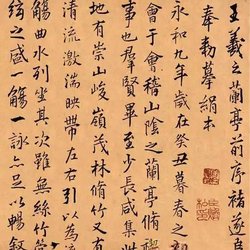 王羲之蘭亭序褚遂
奉勅摹絹本
永和九年歲在癸丑暮春之
會于會稽山陰之蘭亭脩
事也羣賢畢至少長咸集
地有崇山峻嶺茂林脩竹又
清流激湍暎帶左右引以為
觴曲水列坐其次雖無絲竹
絃之盛一觴一詠亦足以暢敘